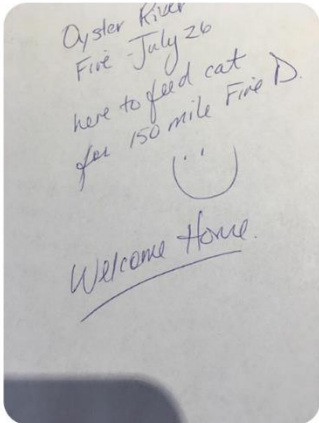 Oyster River
Fire - July 26
here to feed cat
for 150 mile Fire D.
Welcome Home.